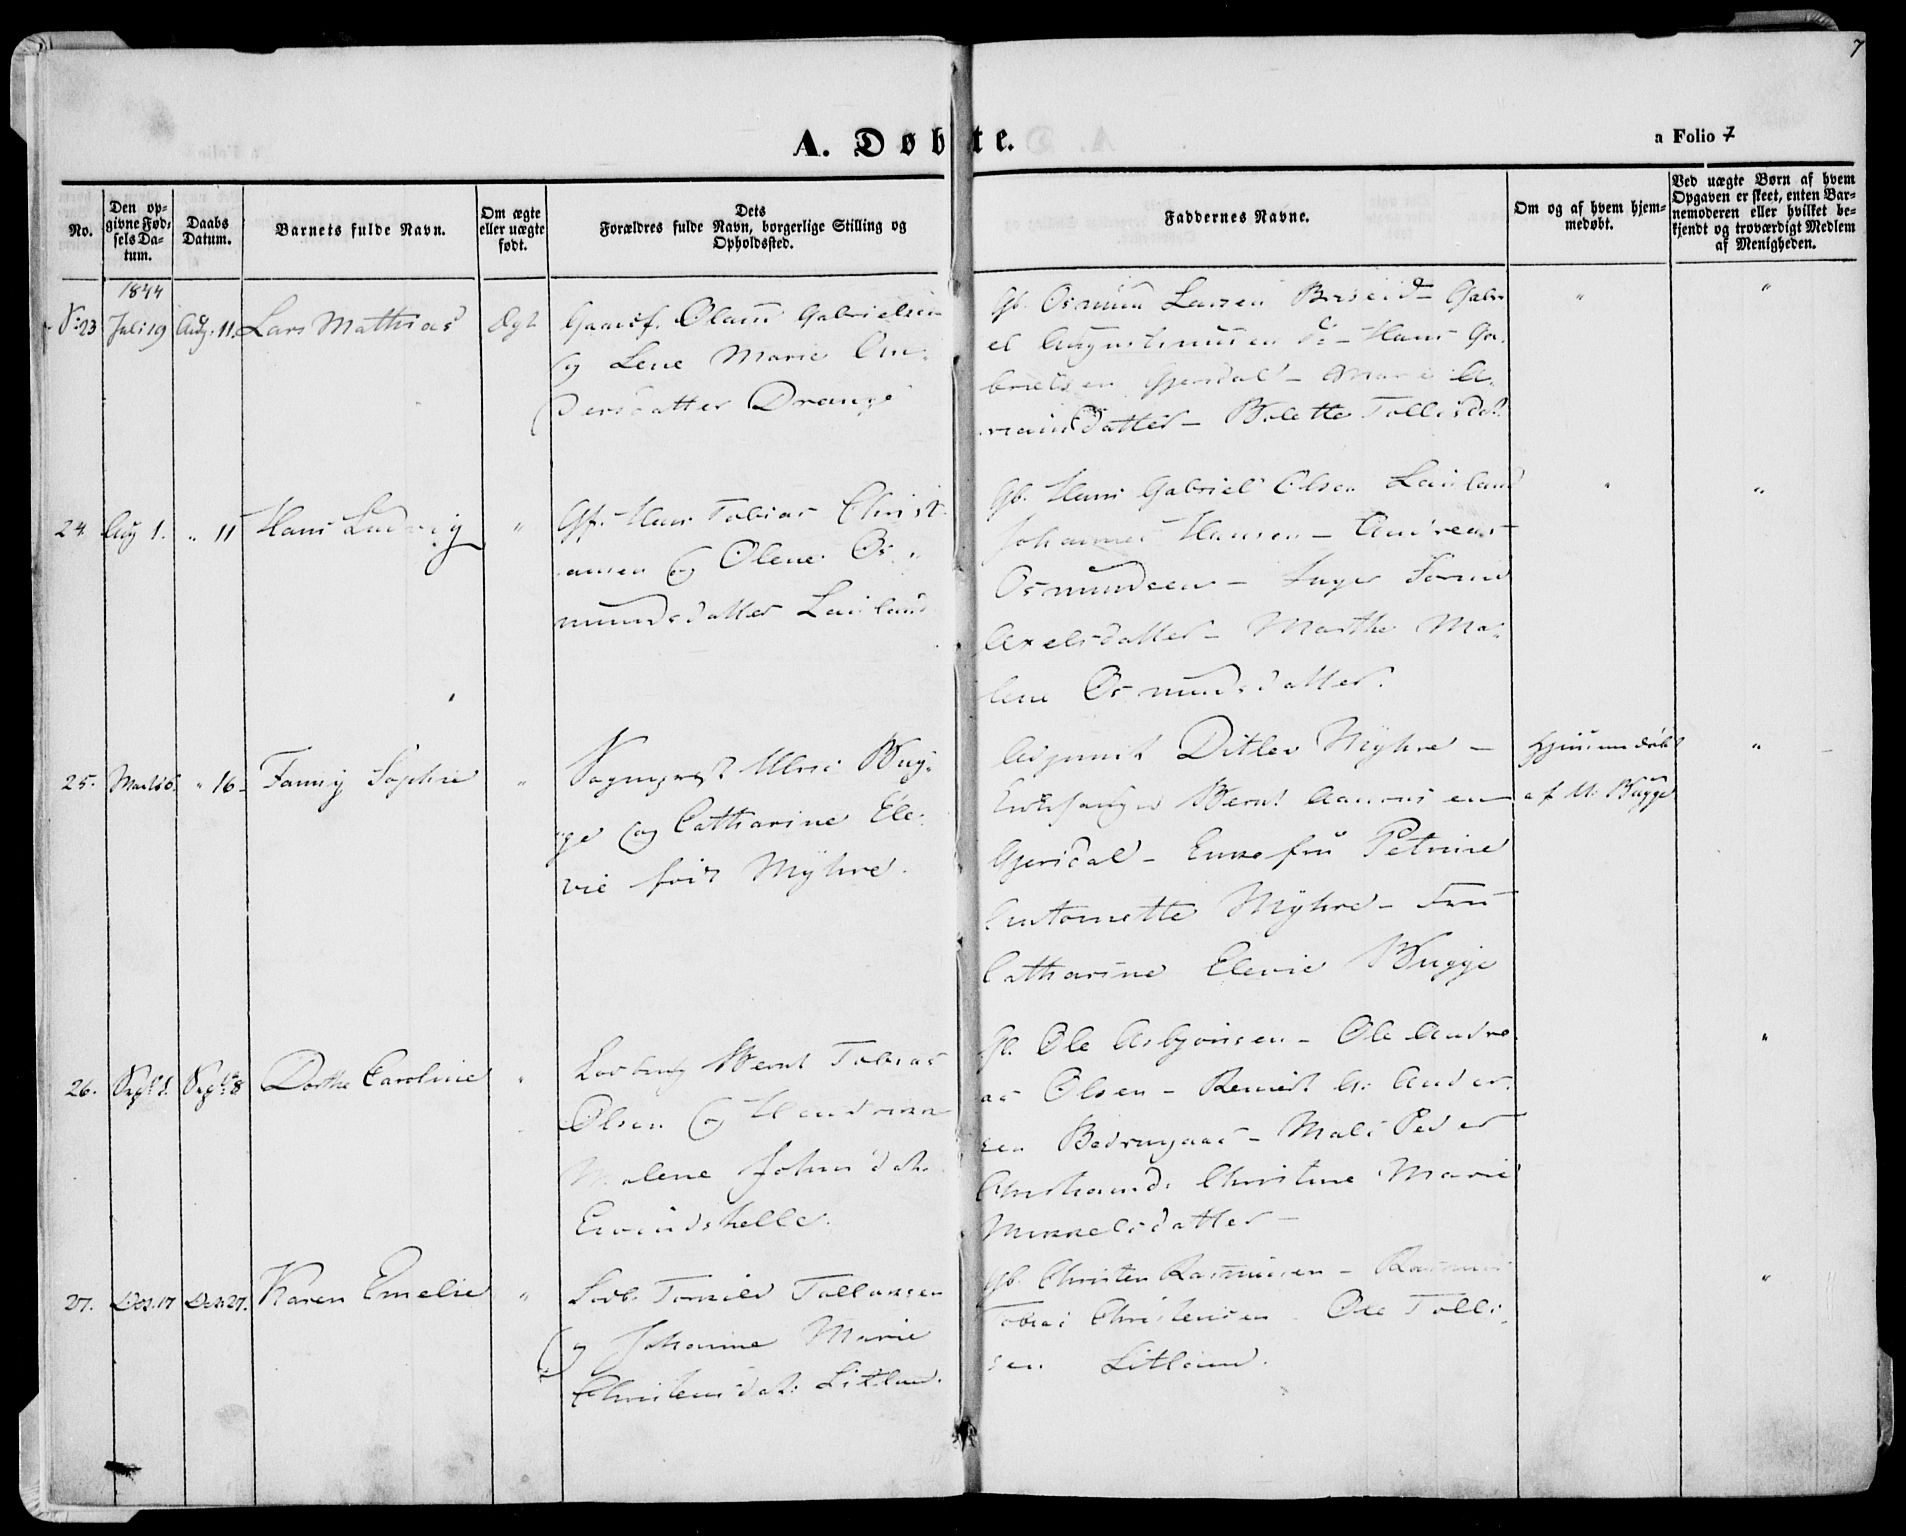 7
A. Døbte.
a Folio 7
No.
Den op-
givne Fød-
sels Da-
tum.
Daabs
Datum.
Barnets fulde Navn.
Om ægte
eller uægte
født.
Dets
Forældres fulde Navn, borgerlige Stilling og
Opholdssted.
Faddernes Navne.
Om og af hvem hjem-
medøbt.
Ved uægte Børn af hvem
Opgaven er skeet, enten Bar-
nemoderen eller hvilket be-
kjendt og troværdigt Medlem
af Menigheden.
1844
23 Juli 19 Aug. 11. Lars Mathias Ægt
Gaardf. Olaus Gabrielsen
og Lene Marie An-
dersdatter Drange
Gb. Osmund Larsen Gabri-
el Augustinusen do - Hans Ga-
brielsen Gjersdal - Marie
datter - Bolette Tollisdat.
" "
24. Aug 1. " 11 Hans Ludvig "
Gf. Hans Tobias Christ-
ansen og Olene Os-
mundsdatter Lauland
Gb. Hans Gabriel Olsen Lauland
Johannes Hansen - Andreas
Osmundsen - Inger
Axelsdatter - Marthe Ma-
lene Osmundsdatter.
" "
25. Marts 6. " 16 Fanny Sophie "
Sogneprst Ulric Bug-
ge og Catharine Ele-
vie født Myhre.
Ditlev Myhre -
Kirkesanger Bernt Aanensen
Gjersdal - Enkefru Petrine
Antonette Myhre - Fru
Catharine Elevie Bugge
hjemmedøbt
af U. Bugge
"
26. Sept 1. Sept 8 Dorthe Caroline "
Bernt Tobias
Olsen og
Malene Johnsdat.
Eivindshelle.
Gb. Ole Asbjørnsen - Ole Andre-
as Olsen - Ander-
sen - Peder
Christine Marie
Mikkelsdatter -
"
27. Dec. 17 Dec. 27. Karen Emelie "
Tollaksen
og Johanne Marie
Christensdat. Litland.
Gb. Christen Rasmussen - Rasmus
Tobias Christensen Ole Tolli-
sen Litland.
"